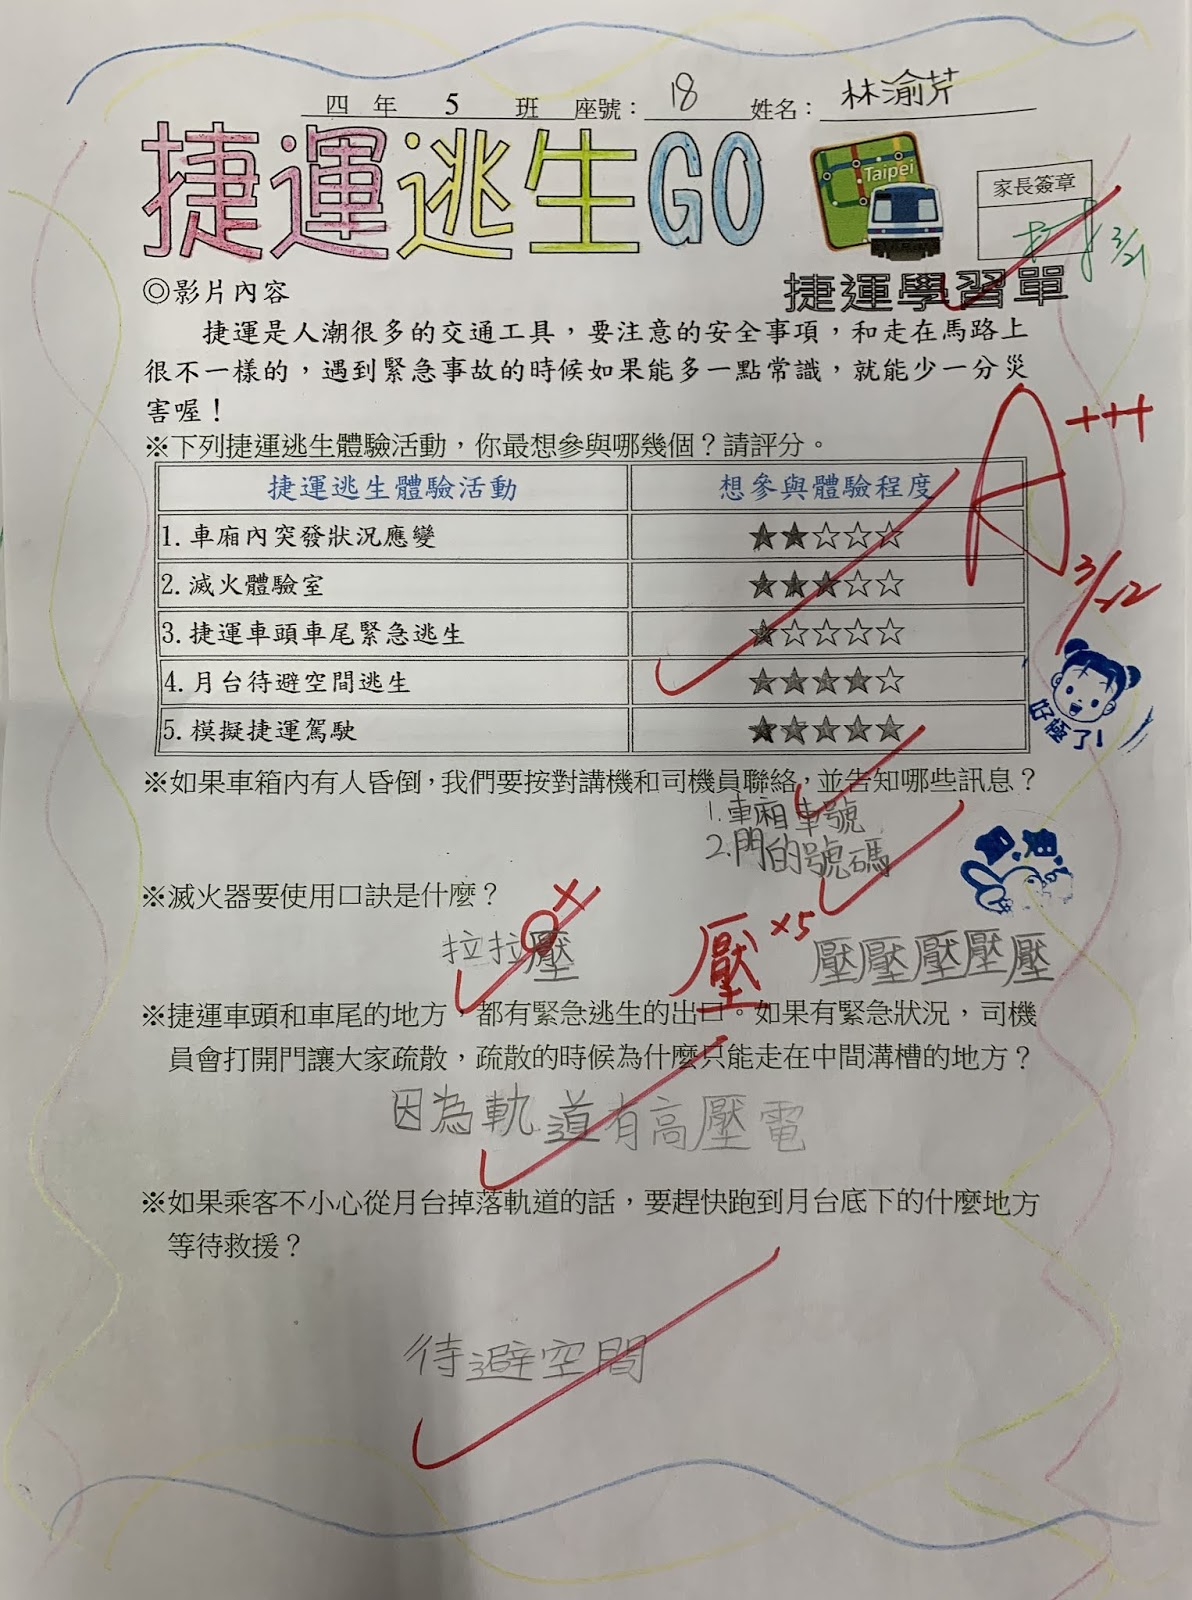 四年 5 班 座號：18 姓名：林渝芹
捷運逃生GO
Taipei
家長簽章
3/21
捷運學習單
◎影片內容
捷運是人潮很多的交通工具，要注意的安全事項，和走在馬路上
很不一樣的，遇到緊急事故的時候如果能多一點常識，就能少一分災
害喔！
A+++
※下列捷運逃生體驗活動，你最想參與哪幾個？請評分。
捷運逃生體驗活動 想參與體驗程度
1.車廂內突發狀況應變 ★★☆☆☆
2.滅火體驗室 ★★★☆☆
3/22
3.捷運車頭車尾緊急逃生 ★☆☆☆☆
4.月台待避空間逃生 ★★★★☆
5.模擬捷運駕駛 ★★★★★
好極了!
※如果車箱內有人昏倒，我們要按對講機和司機員聯絡，並告知哪些訊息？
1.車廂車號
2.門的號碼
※滅火器要使用口訣是什麼？
拉拉壓 壓×5 壓壓壓壓壓
※捷運車頭和車尾的地方，都有緊急逃生的出口。如果有緊急狀況，司機
員會打開門讓大家疏散，疏散的時候為什麼只能走在中間溝槽的地方？
因為軌道有高壓電
※如果乘客不小心從月台掉落軌道的話，要趕快跑到月台底下的什麼地方
等待救援？
待避空間